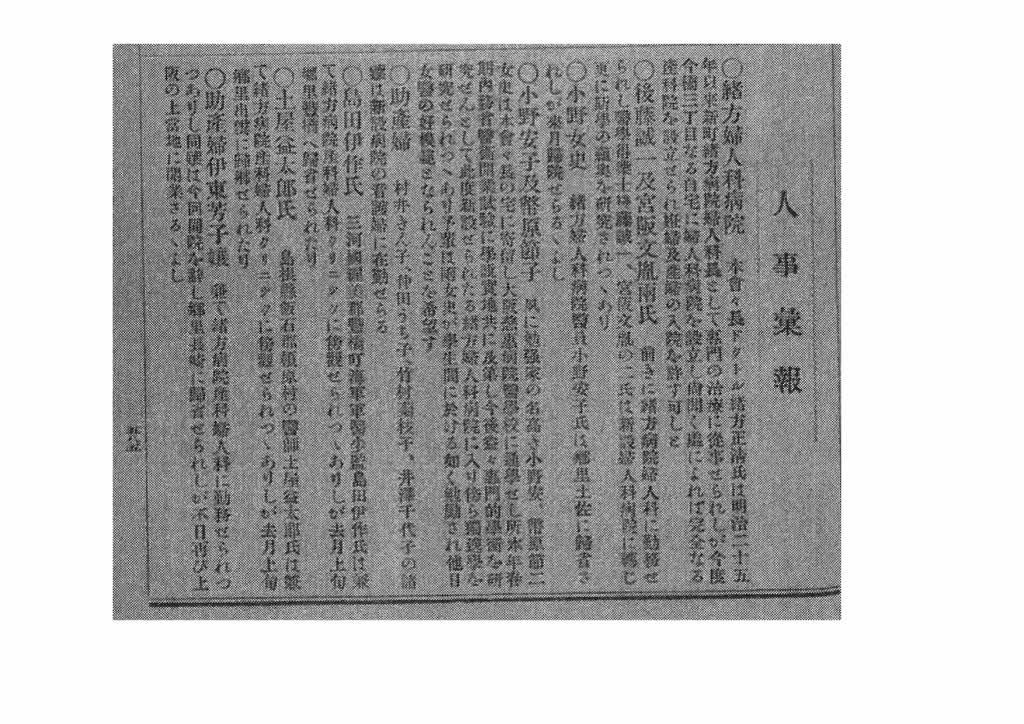 人事彙報
〇緒方婦人科病院 本會々長ドクトル緒方正淸氏は明治二十五
年以來新町緒方病院婦人科長として專門の治療に從事せられしが今度
今橋三丁目なる自宅に婦人科病院を設立し尙聞く處によれば完全なる
產科院を設立せられ姙婦及產婦の入院を許す可しと
〇後藤誠一及宮阪文胤兩氏 前きに緒方病院婦人科に勤務せ
られし醫學得業士後藤誠一、宮阪文胤の二氏は新設婦人科病院に轉じ
更に斯學の蘊奧を研究されつゝあり
〇小野女史 緒方婦人科病院醫員小野安子氏は鄕里土佐に歸省さ
れしが來月歸院せらるゝよし
〇小野安子及幣原節子 夙に勉强家の名高き小野安、幣原節二
女史は本會々長の宅に寄宿し大阪慈惠病院醫學校に通學せし所本年春
期內務省醫術開業試驗に學說實地共に及第し今後益々專門的學術を研
究せんとして此度新設せられたる緒方婦人科病院に入り傍ら獨逸學を
研究せられつゝあり予輩は兩女史が學生間に於ける如く勉勵され他日
女醫の好模範となられんことを希望す
〇助產婦 村井きん子、仲田うち子、竹村菊枝子、井澤千代子の諸
孃は新設病院の看護婦に在勤せらる
〇島田伊作氏 三河國渥美郡豐橋町海軍軍醫少監島田伊作氏は兼
て緒方病院產科婦人科クリニックに傍觀せられつゝありしが去月上旬
鄕里豐橋へ歸省せられたり
〇土屋益太郞氏 島根縣飯石郡頓原村の醫師土屋益太郞氏は兼
て緒方病院產科婦人科クリニックに傍觀せられつゝありしが去月上旬
鄕里出雲に歸鄕せられたり
〇助產婦伊東芳子孃 兼て緒方病院產科婦人科に勤務せられつ
つありし同孃は今回同院を辭し鄕里長崎に歸省せられしが不日再び上
阪の上當地に開業さるゝよし